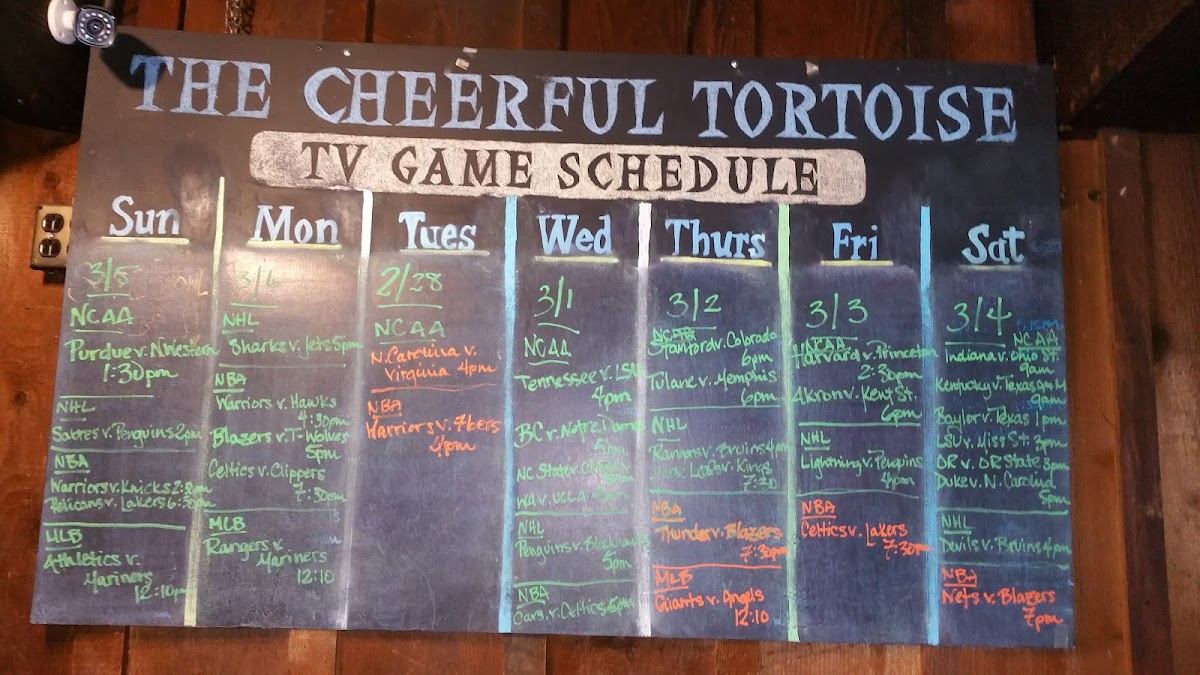 THE CHEERFUL TORTOISE
TV GAME SCHEDULE
Sun
3/5
NCAA
Purdue v. N.Western
1:30pm
NHL
Sabres v. Penguins 2pm
NBA
Warriors v. Knicks
Pelicans v. Lakers 6:30pm
MLB
Athletics v.
Mariners
12:10pm
Mon
NHL
Sharks v. Jets 5pm
NBA
Warriors v. Hawks
4:30pm
Blazers v. T-Wolves
5pm
Celtics v. Clippers
7:30pm
MLB
Rangers v.
Mariners
12:10
Tues
2/28
NCAA
N. Carolina v.
Virginia 4pm
NBA
Warriors v. 76ers
4pm
Wed
3/1
NCAA
Tennessee v. LSU
4pm
BC v. Notre Dame
NC State v.
WA v. UCLA
NHL
Penguins v. Blackhawks
5pm
NBA
Cavs v. Celtics 5pm
Thurs
3/2
NCAA
Stanford v. Colorado
6pm
Tulane v. Memphis
6pm
NHL
Rangers v. Bruins 4pm
v. Kings
7:30
NBA
Thunder v. Blazers
7:30pm
MLB
Giants v. Angels
12:10
Fri
3/3
NCAA
Harvard v. Princeton
2:30pm
Akron v. Kent St.
6pm
NHL
Lightning v. Penguins
4pm
NBA
Celtics v. Lakers
7:30pm
Sat
3/4
NCAA
Indiana v. Ohio St.
9am
Kentucky v. Texas A&M
9am
Baylor v. Texas 1pm
LSU v. Miss St. 3pm
OR v. OR State 3pm
Duke v. N. Carolina
5pm
NHL
Devils v. Bruins 4pm
NBA
Nets v. Blazers
7pm